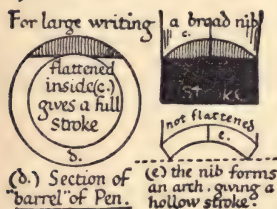 For large writing
a broad nib
c.
flattened
inside (c.)
gives a full
Stroke
Stroke
not flattened
e.
b.
(b.) Section of
"barrel" of Pen.
(e) the nib forms
an arch, giving a
hollow stroke.